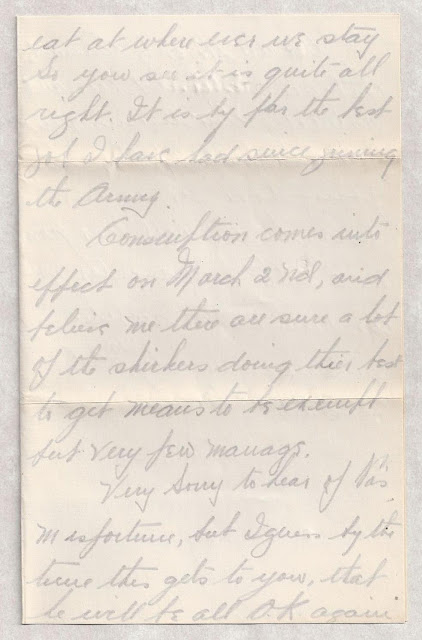 eat at where ever we stay
So you see it is quite all
right. It is by far the best
job I have had since joining
the Army.
Conscription comes into
effect on March 2nd, and
believe me there are sure a lot
of the shirkers doing thier best
to get means to be exempt
but very few manage.
Very Sorry to hear of Pa's
Misfortune, but I guess by the
time this gets to you, that
he will be all O.K. again